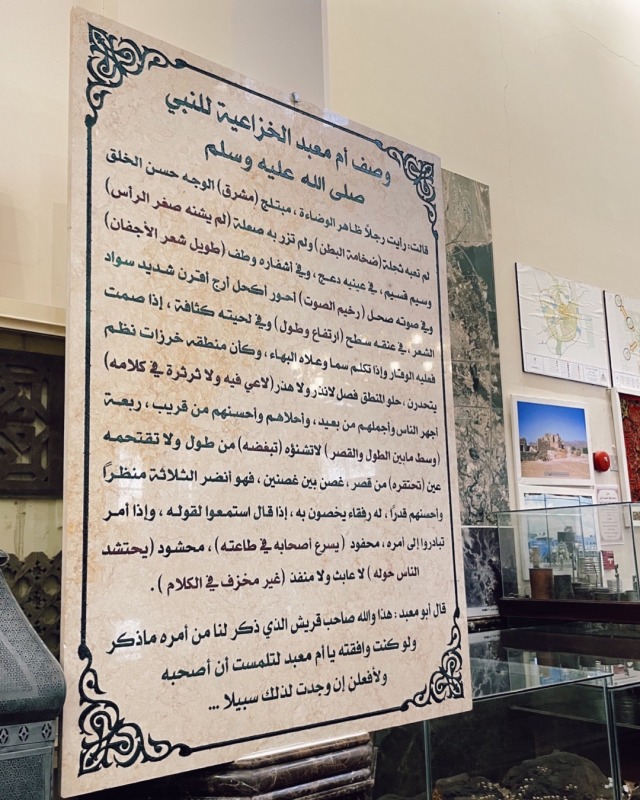 وصف أم معبد الخزاعية للنبي
صلى الله عليه وسلم
قالت: رايت رجلاً ظاهر الوضاءة ، مبتلج (مشرق) الوجه حسن الخلق
لم تعبه ثجلة (ضخامة البطن) ولم تزر به صعلة (لم يشنه صغر الرأس)
وسيم قسيم، في عينيه دعج ، وفي أشفاره وطف (طويل شعر الأجفان)
وفي صوته صحل (رخيم الصوت) أحور أكحل أرج أقرن شديد سواد
الشعر، في عنقه سطح (ارتفاع وطول) وفي لحيته كثافة ، إذا صمت
فعليه الوقار وإذا تكلم سما وعلاه البهاء ، وكأن منطقه خرزات نظم
يتحدرن ، حلو المنطق فصل لانذر ولا هذر (لاعي فيه ولا ثرثرة في كلامه)
أجهر الناس وأجملهم من بعيد ، وأحلاهم وأحسنهم من قريب ، ربعة
(وسط مابين الطول والقصر) لاتشنؤه (تبغضه) من طول ولا تقتحمه
عين (تحتقره) من قصر ، غصن بين غصنين ، فهو أنضر الثلاثة منظراً
وأحسنهم قدراً ، له رفقاء يخصون به ، إذا قال استمعوا لقوله ، وإذا أمر
تبادروا إلى أمره ، محفود (يسرع أصحابه في طاعته) ، محشود (يحتشد
الناس حوله) لا عابث ولا منفذ (غير مخزف في الكلام) .
قال أبو معبد : هذا والله صاحب قريش الذي ذكر لنا من أمره ماذكر
ولو كنت وافقته يا أم معبد لتلمست أن أصحبه
ولأفعلن إن وجدت لذلك سبيلا ...